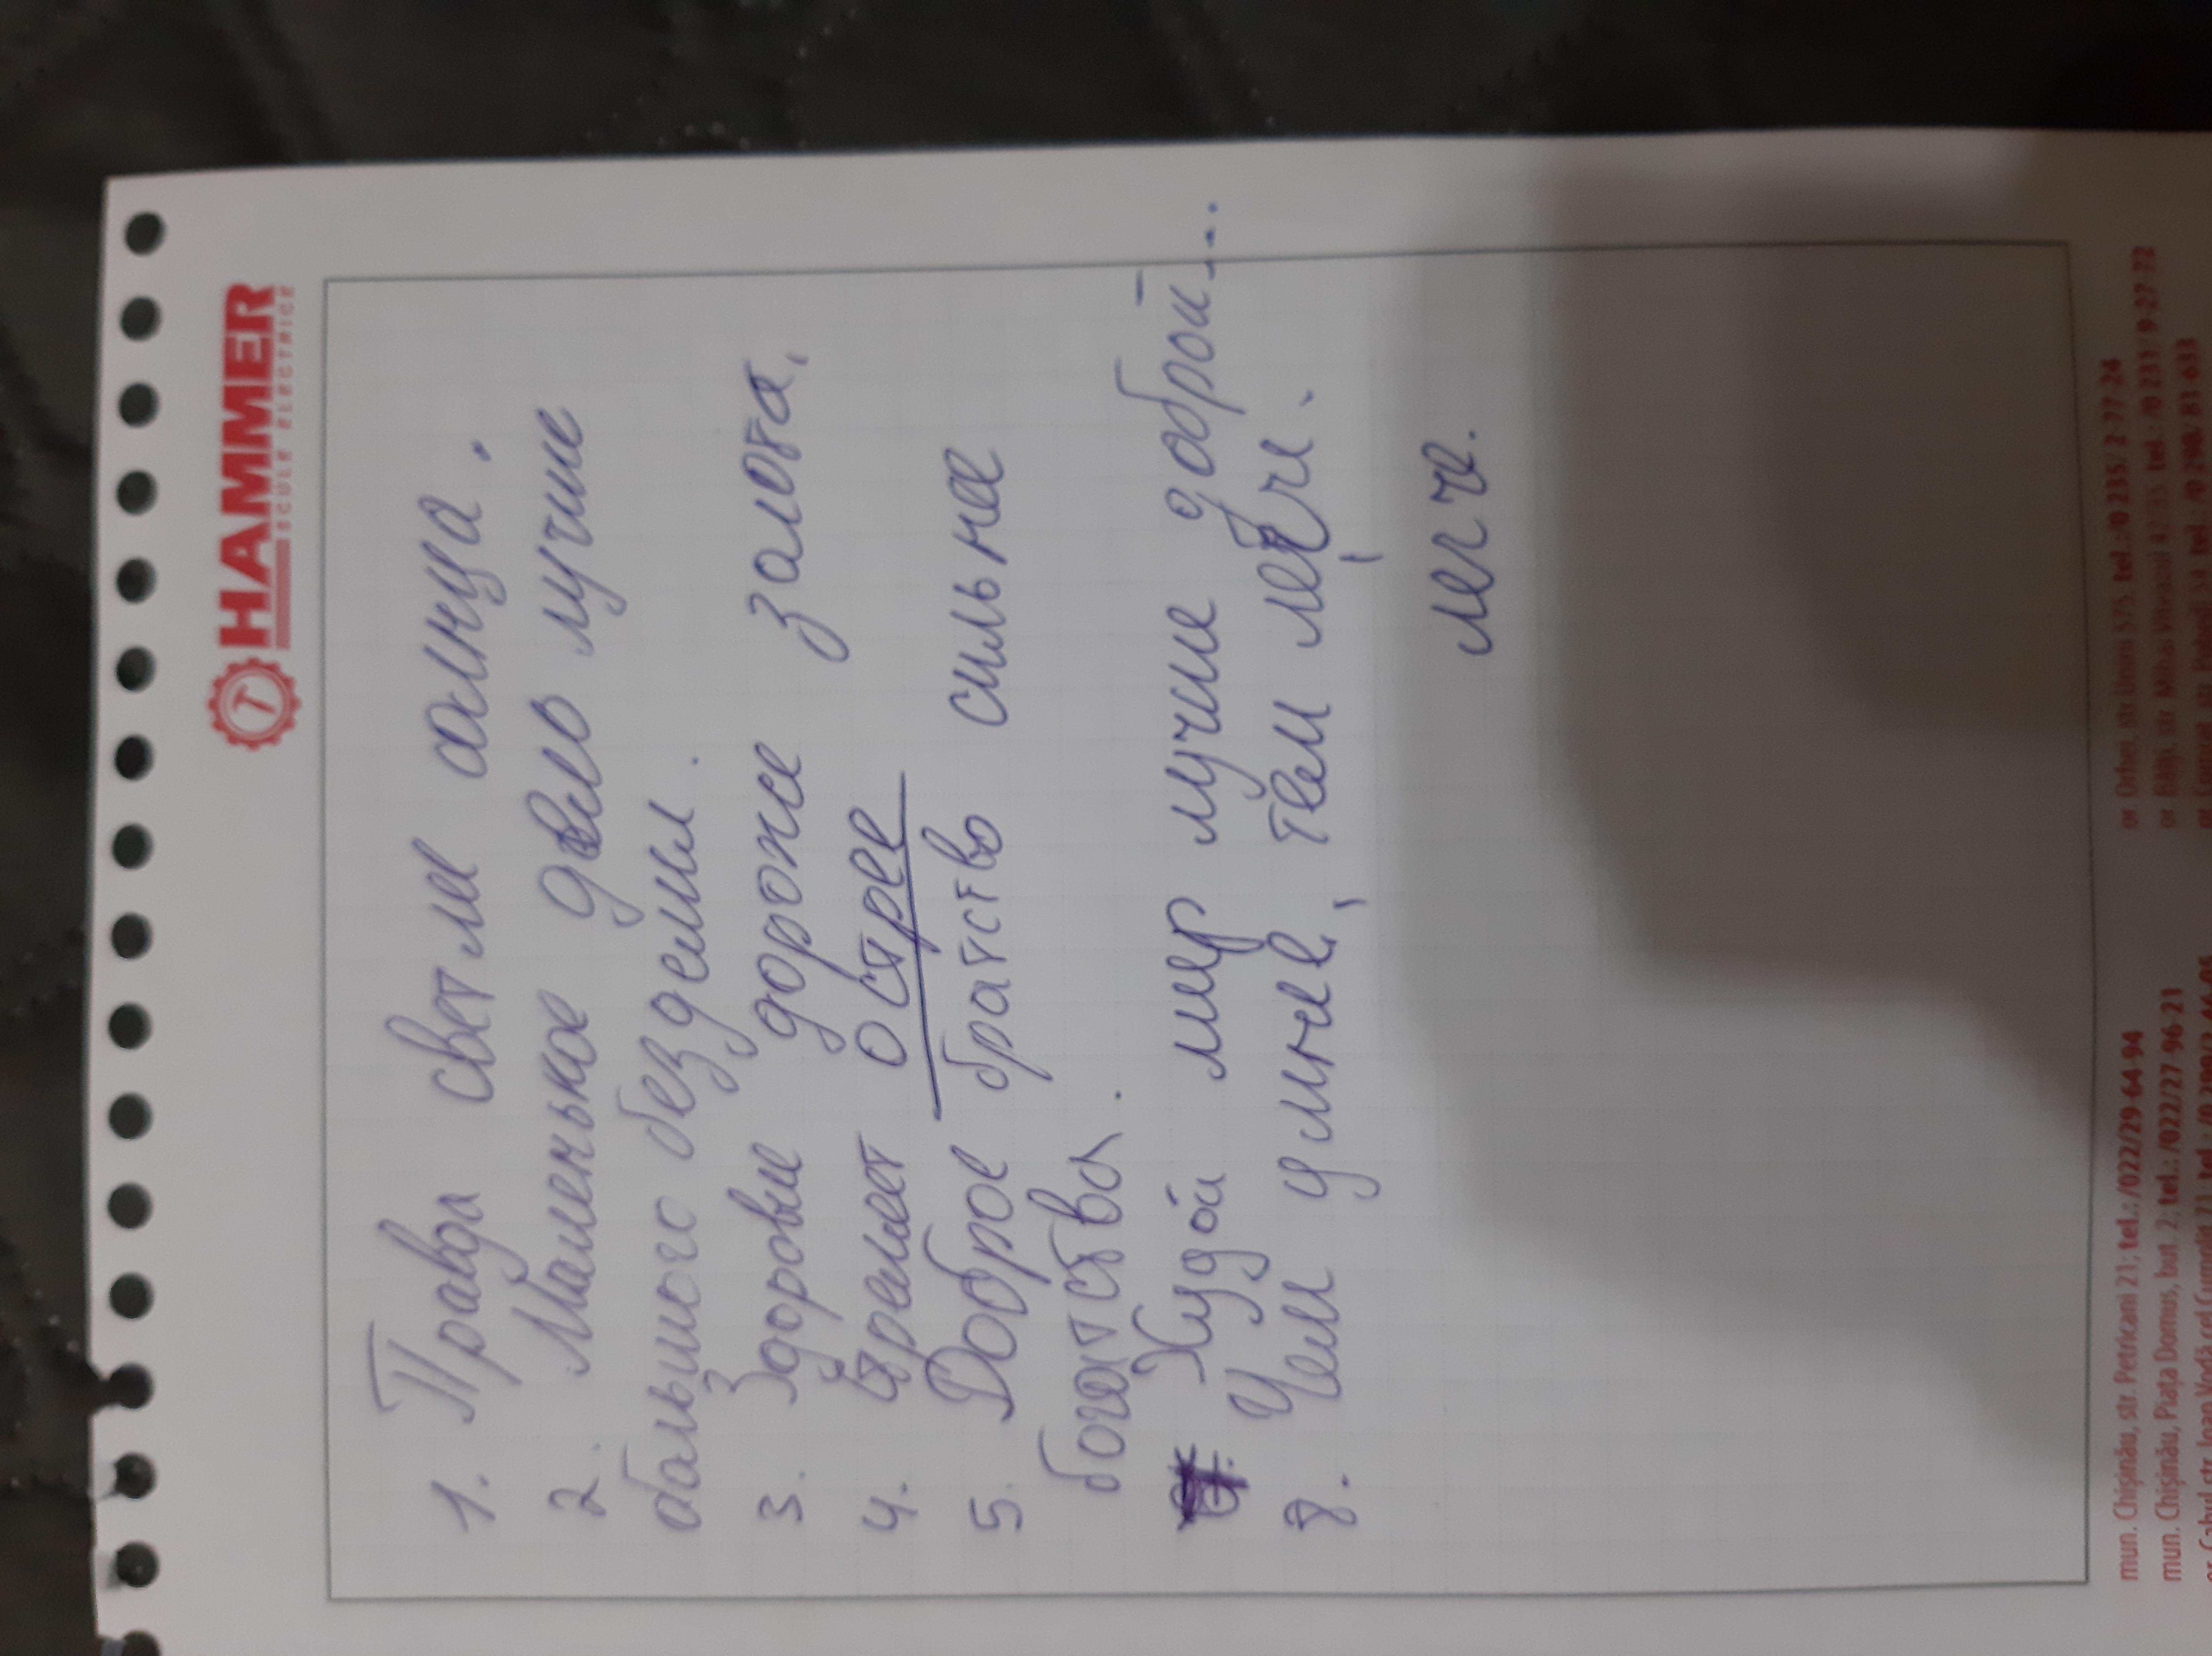 HAMMER
SCULE ELECTRICE
1. Правда светле солнца.
2. Маленькое дело лучше
большого безделия.
3. Здоровье дороже золота.
4. Время острее
5. Доброе братство сильнее
богатства.
Худой мир лучше доброй...
8. Чем умнее, тем легче.
легче.
mun. Chișinău, str. Petricani 21; tel.: /022/29-64-94
mun. Chișinău, Piața Domus, but. 2; tel.: /022/27 96-21
or Orhei, str. Unirii 575, tel.: /0 235/ 2-77-24
or Bălți, str. Mihai Viteazul tel.: /0 231/ 9-27-72
tel.: /0 298/ 81-633